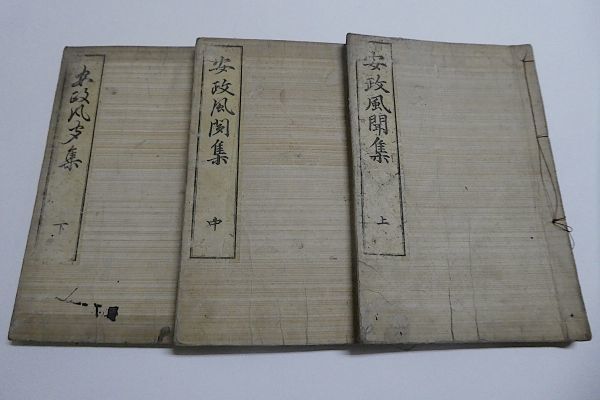 安政風聞集
上
安政風聞集
中
安政风聞集
下